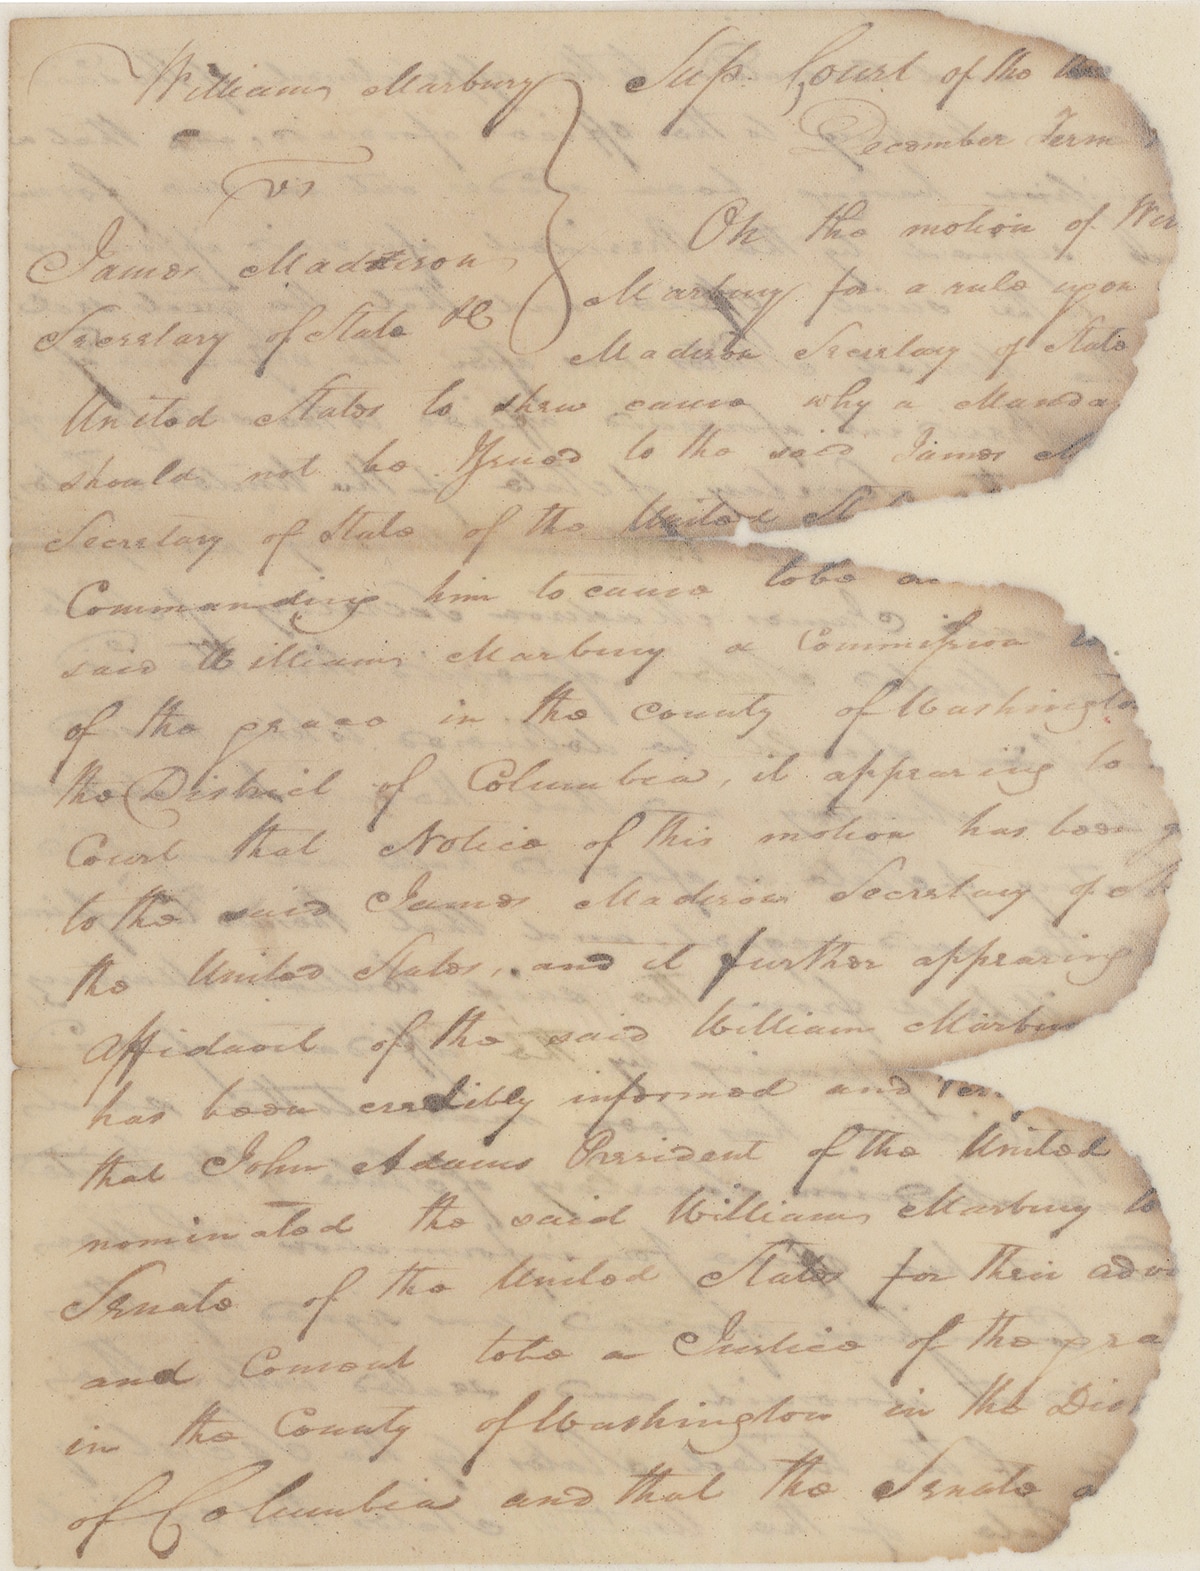 William Marbury
vs
James Maddison
Secretary of State &c
Sup. Court of the Un
December Term
On the motion of
Marbury for a rule upon
Madison Secretary of State
United States to shew cause why a Manda
should not be Issued to the said James M
Secretary of State of the United St
Commanding him to cause tobe
said William Marbury a Commission
of the peace in the county of Washington
the District of Columbia, it appearing to
Court that Notice of this motion has been g
to the said James Madison Secretary of St
the United States, and it further appearing
Affidavit of the said William Marbu
has been credibly informed and
that John Adams President of the United
nominated the said William Marbury to
Senate of the United States for their advi
and Consent tobe a Justice of the pea
in the County of Washington in the Dis
of Columbia and that the Senate a